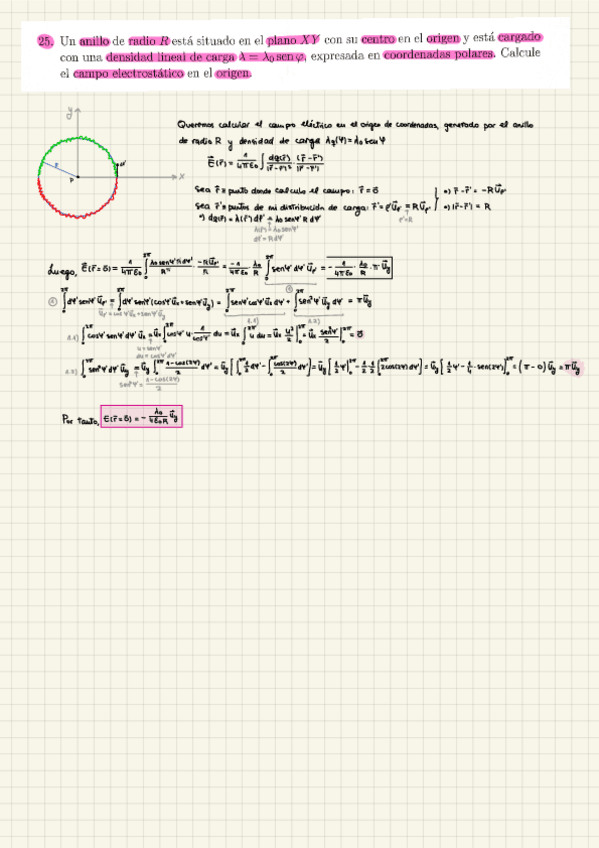 25. Un anillo de radio R está situado en el plano XY con su centro en el origen y está cargado
con una densidad lineal de carga λ = λ₀ sen φ, expresada en coordenadas polares. Calcule
el campo electrostático en el origen.
y
Queremos calcular el campo eléctrico en el origen de coordenadas, generado por el anillo
de radio R y densidad de carga λq(φ) = λ₀ sen φ
R
P
x
dl'
E⃗(r⃗) = 1/4πε₀ ∫ dq(r⃗')/|r⃗-r⃗'|² · (r⃗-r⃗')/|r⃗-r⃗'|
Sea r⃗ ≡ punto donde calculo el campo: r⃗ = 0⃗
•) r⃗-r⃗' = -R u⃗ρ'
Sea r⃗' ≡ puntos de mi distribución de carga: r⃗' = ρ' u⃗ρ' = R u⃗ρ'
•) |r⃗-r⃗'| = R
ρ'=R
•) dq(r⃗') = λ(r⃗') dl' = λ₀ sen φ' R dφ'
λ(r⃗') = λ₀ sen φ'
dl' = R dφ'
Luego, E⃗(r⃗=0⃗) = 1/4πε₀ ∫₀^2π λ₀ sen φ' R dφ'/R² · -R u⃗ρ'/R = -1/4πε₀ · λ₀/R ∫₀^2π sen φ' dφ' u⃗ρ' = - 1/4πε₀ · λ₀/R · π u⃗y
① ∫₀^2π dφ' sen φ' u⃗ρ' = ∫₀^2π dφ' sen φ' (cos φ' u⃗x + sen φ' u⃗y) = ∫₀^2π sen φ' cos φ' u⃗x dφ' + ∫₀^2π sen² φ' u⃗y dφ' = π u⃗y
u⃗ρ' = cos φ' u⃗x + sen φ' u⃗y
1.1)
1.2)
1.1) ∫₀^2π cos φ' sen φ' dφ' u⃗x = u⃗x ∫₀^2π cos φ' u · 1/cos φ' du = u⃗x ∫ u du = u⃗x u²/2 |₀^2π = u⃗x sen² φ'/2 |₀^2π = 0⃗
u = sen φ'
du = cos φ' dφ'
1.2) ∫₀^2π sen² φ' dφ' u⃗y = u⃗y ∫₀^2π 1-cos(2φ')/2 dφ' = u⃗y [∫₀^2π 1/2 dφ' - ∫₀^2π cos(2φ')/2 dφ'] = u⃗y [1/2 φ' |₀^2π - 1/2 · 1/2 ∫₀^2π 2cos(2φ') dφ'] = u⃗y [1/2 φ' - 1/4 · sen(2φ')]₀^2π = (π - 0) u⃗y = π u⃗y
sen² φ' = 1-cos(2φ')/2
Por tanto, E⃗(r⃗=0⃗) = - λ₀/4ε₀R u⃗y